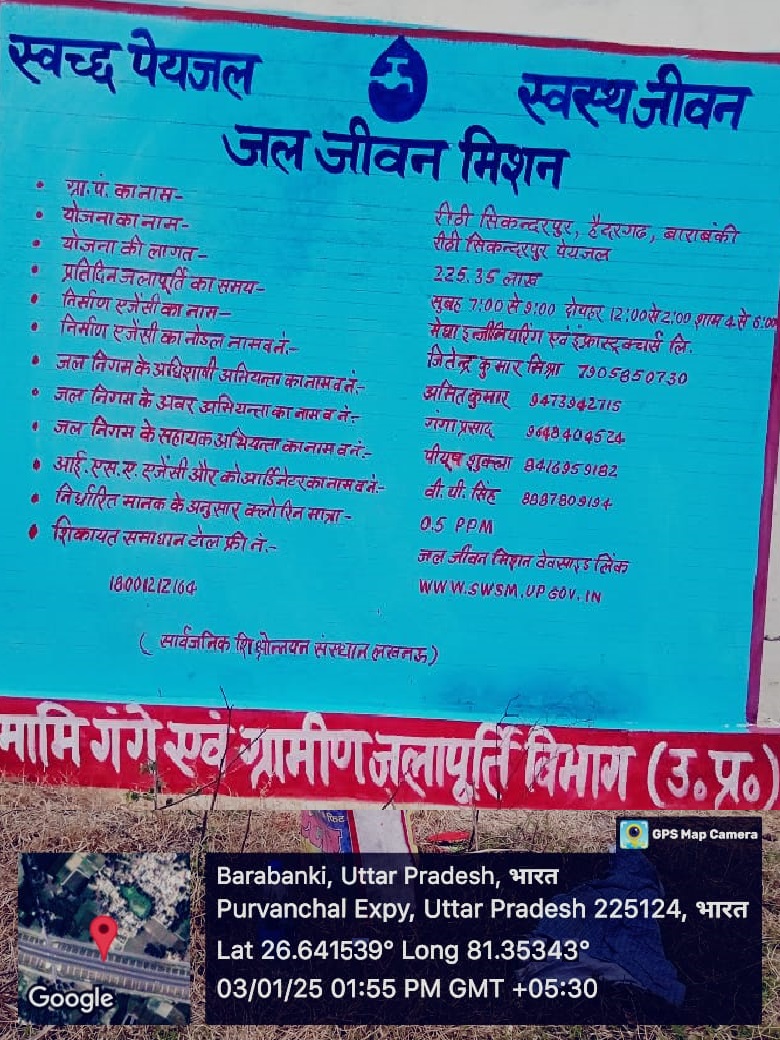 स्वच्छ पेयजल
स्वस्थ जीवन
जल जीवन मिशन
• ग्रा.पं. का नाम- रीठी सिकन्दरपुर, हैदरगढ़, बाराबंकी
• योजना का नाम- रीठी सिकन्दरपुर पेयजल
• योजना की लागत- 225.35 लाख
• प्रतिदिन जलापूर्ति का समय- सुबह 7:00 से 9:00 दोपहर 12:00 से 2:00 शाम 4 से 6:00
• निर्माण एजेंसी का नाम- मेघा इन्जीनियरिंग एवं इंफ्रास्ट्रक्चर्स लि.
• निर्माण एजेंसी का नोडल नाम व नं.- जितेन्द्र कुमार मिश्रा 7905850730
• जल निगम के अधिशाषी अभियन्ता का नाम व नं.- अमित कुमार 9473942715
• जल निगम के अवर अभियन्ता का नाम व नं.- गंगा प्रसाद 9648404524
• जल निगम के सहायक अभियन्ता का नाम व नं.- पीयूष शुक्ला 8416959182
• आई.एस.ए. एजेंसी और कोआर्डिनेटर का नाम व नं- वी.पी. सिंह 8887809194
• निर्धारित मानक के अनुसार क्लोरिन मात्रा- 0.5 PPM
• शिकायत समाधान टोल फ्री नं.- जल जीवन मिशन वेबसाइड लिंक
18001212164 WWW.SWSM.UP.GOV.IN
( सार्वजनिक शिक्षोन्नयन संस्थान लखनऊ)
मामि गंगे एवं ग्रामीण जलापूर्ति विभाग (उ.प्र.)
फिट
GPS Map Camera
Barabanki, Uttar Pradesh, भारत
Purvanchal Expy, Uttar Pradesh 225124, भारत
Lat 26.641539° Long 81.35343°
03/01/25 01:55 PM GMT +05:30
Google